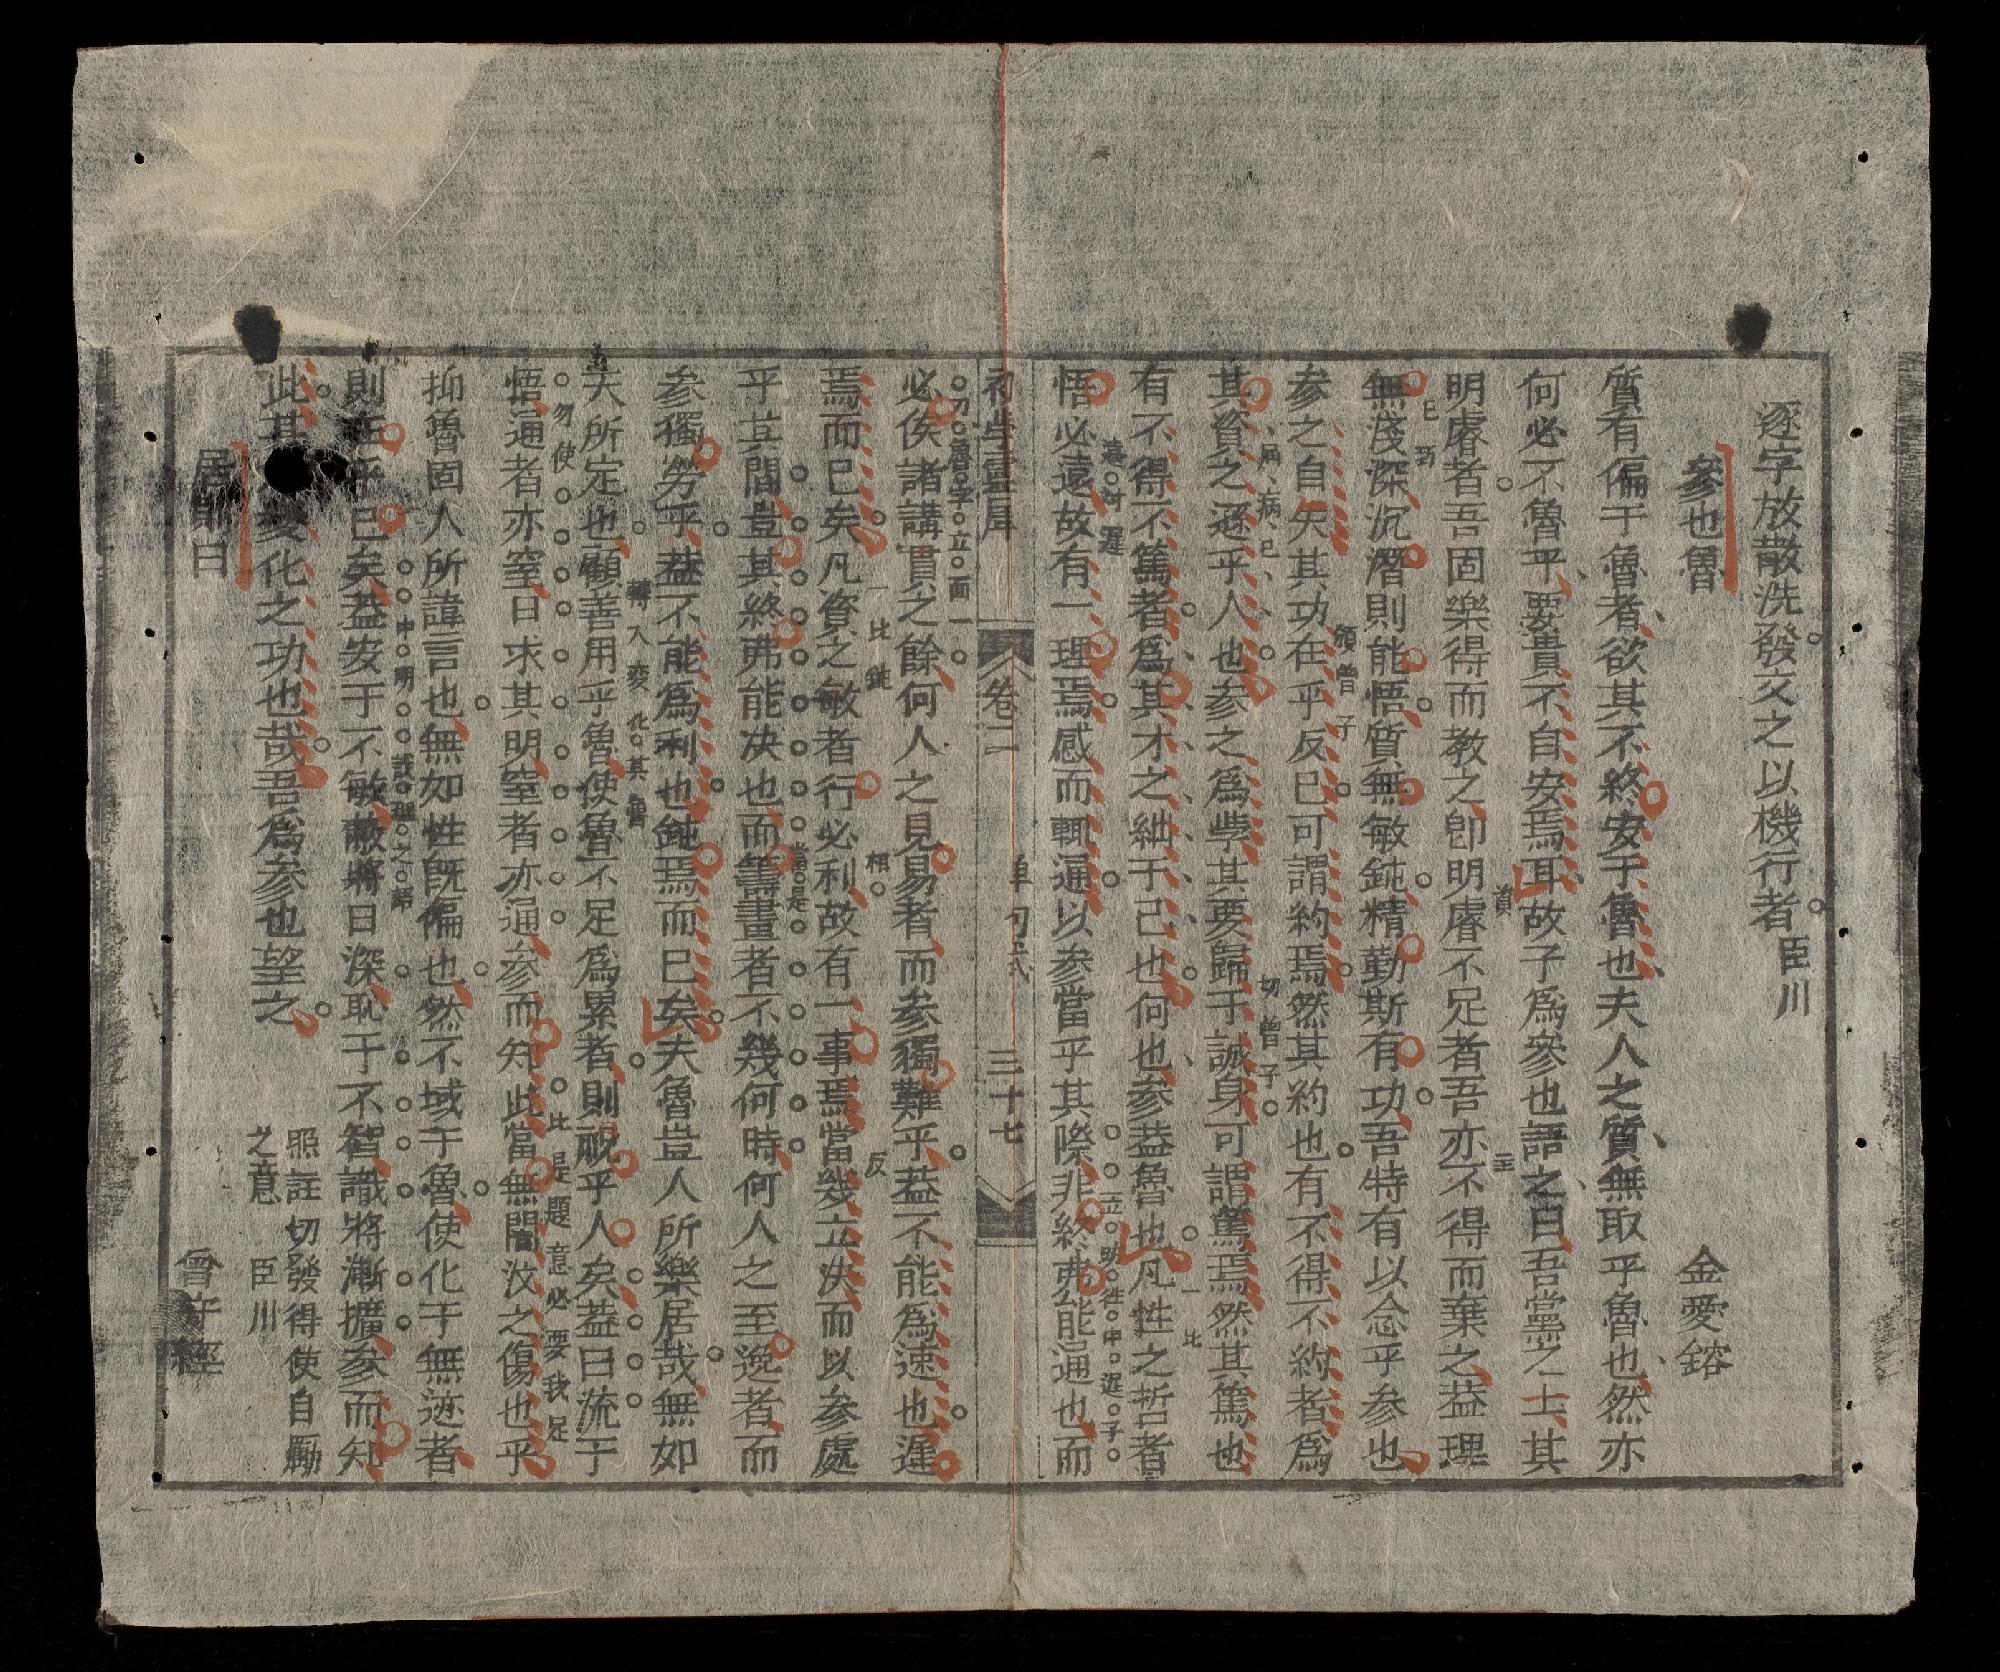 逐字放散洗發文之以機行者 臣川
參也魯 金愛鎔
質有偏于魯者欲其不終安于魯也夫人之質無取乎魯也然亦
何必不魯乎要貴不自安焉耳故子爲參也語之曰吾黨之士其
明睿者吾固樂得而教之卽明睿不足者吾亦不得而棄之葢理
無淺深沉潛則能悟質無敏鈍精勤斯有功吾特有以念乎参也
参之自矢其功在乎反已可謂約焉然其約也有不得不約者爲
其資之遜乎人也参之爲學其要歸于誠身可謂篤焉然其篤也
有不得不篤者爲其才之絀于己也何也参葢魯也凡性之哲者
悟必遠故有一理焉感而輒通以参當乎其際非終弗能通也而
初學靈犀 卷二 單句式 三十七
必俟諸講貫之餘何人之見易者而参獨難乎葢不能爲速也遲
焉而已矣凡資之敏者行必利故有一事焉當幾立決而以参處
乎其間豈其終弗能決也而籌畫者不幾何時何人之至逸者而
参獨勞乎葢不能爲利也鈍焉而已矣夫魯豈人所樂居哉無如
天所定也顧善用乎魯使魯不足爲累者則視乎人矣葢日流于
悟通者亦窒日求其明窒者亦通参而知此當無闇汶之傷也乎
抑魯固人所諱言也無如性旣偏也然不域于魯使化于無迹者
則在乎已矣葢安于不敏敵將日深恥于不智識將漸擴参而知
此其變化之功也哉吾爲参也望之
照註切發得使自勵
之意 臣川
居則曰 曾守經